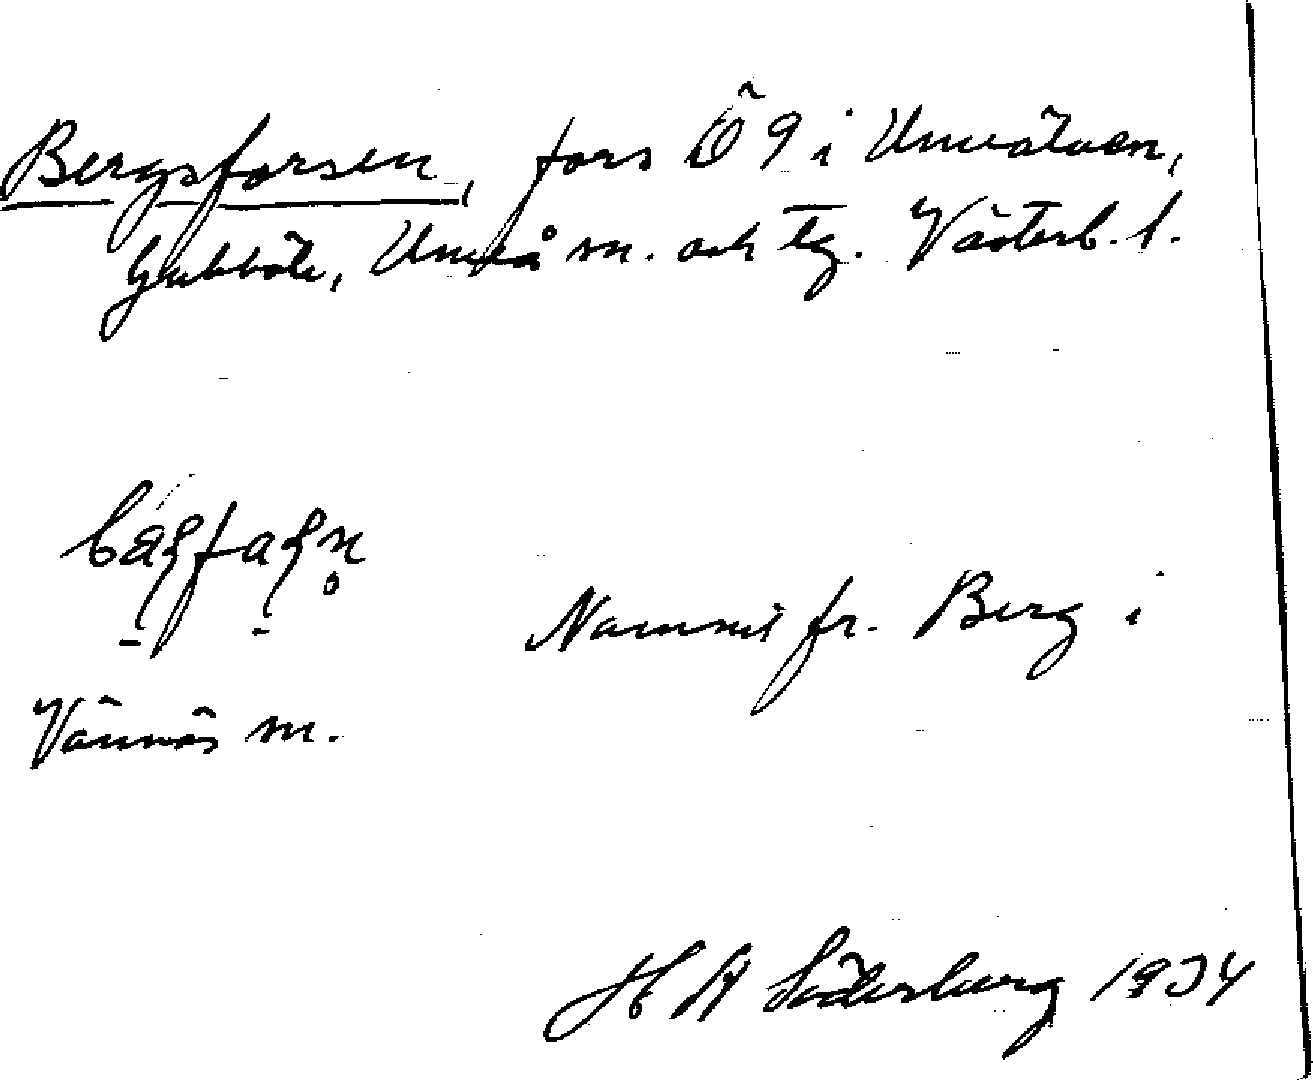 Bergsforsen, fors Ö 9 i Umeälven,
Gubböle, Umeå sn. och tg. Västerb. l.
Namnet fr. Berg i
Vännäs sn.
H A Söderberg 1934